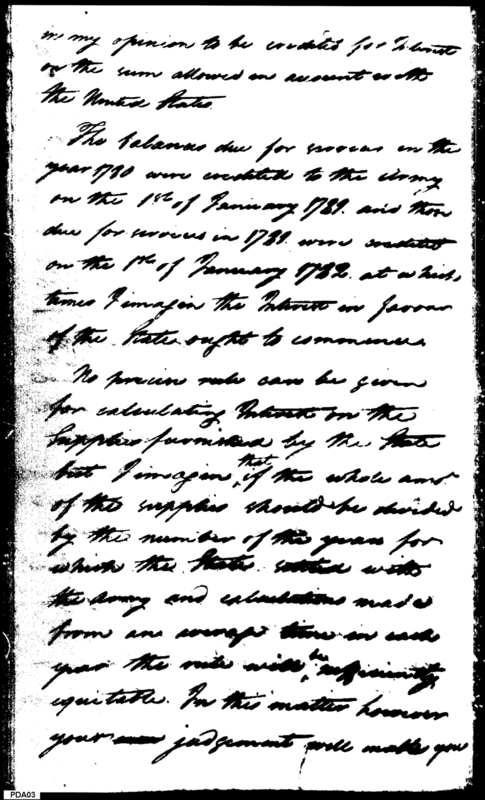 in my opinion to be credited for Interest
on the sum allowed in account with
the United States.
The balances due for services in the
year 1780 were credited to the Army
on the 1st of January 1781. and those
due for services in 1781 were credited
on the 1st of January 1782. at which
times I imagin the Interest in favour
of the State ought to commence.
No precise rule can be given
for calculating Interest on the
Supplies furnished by the State
but I imagin that, if the whole amt
of the supplies should be divided
by the number of the years for
which the State settled with
the Army and calculations made
from an average time in each
year the rule will be sufficiently
equitable. In this matter however
your judgement will enable you
PDA03